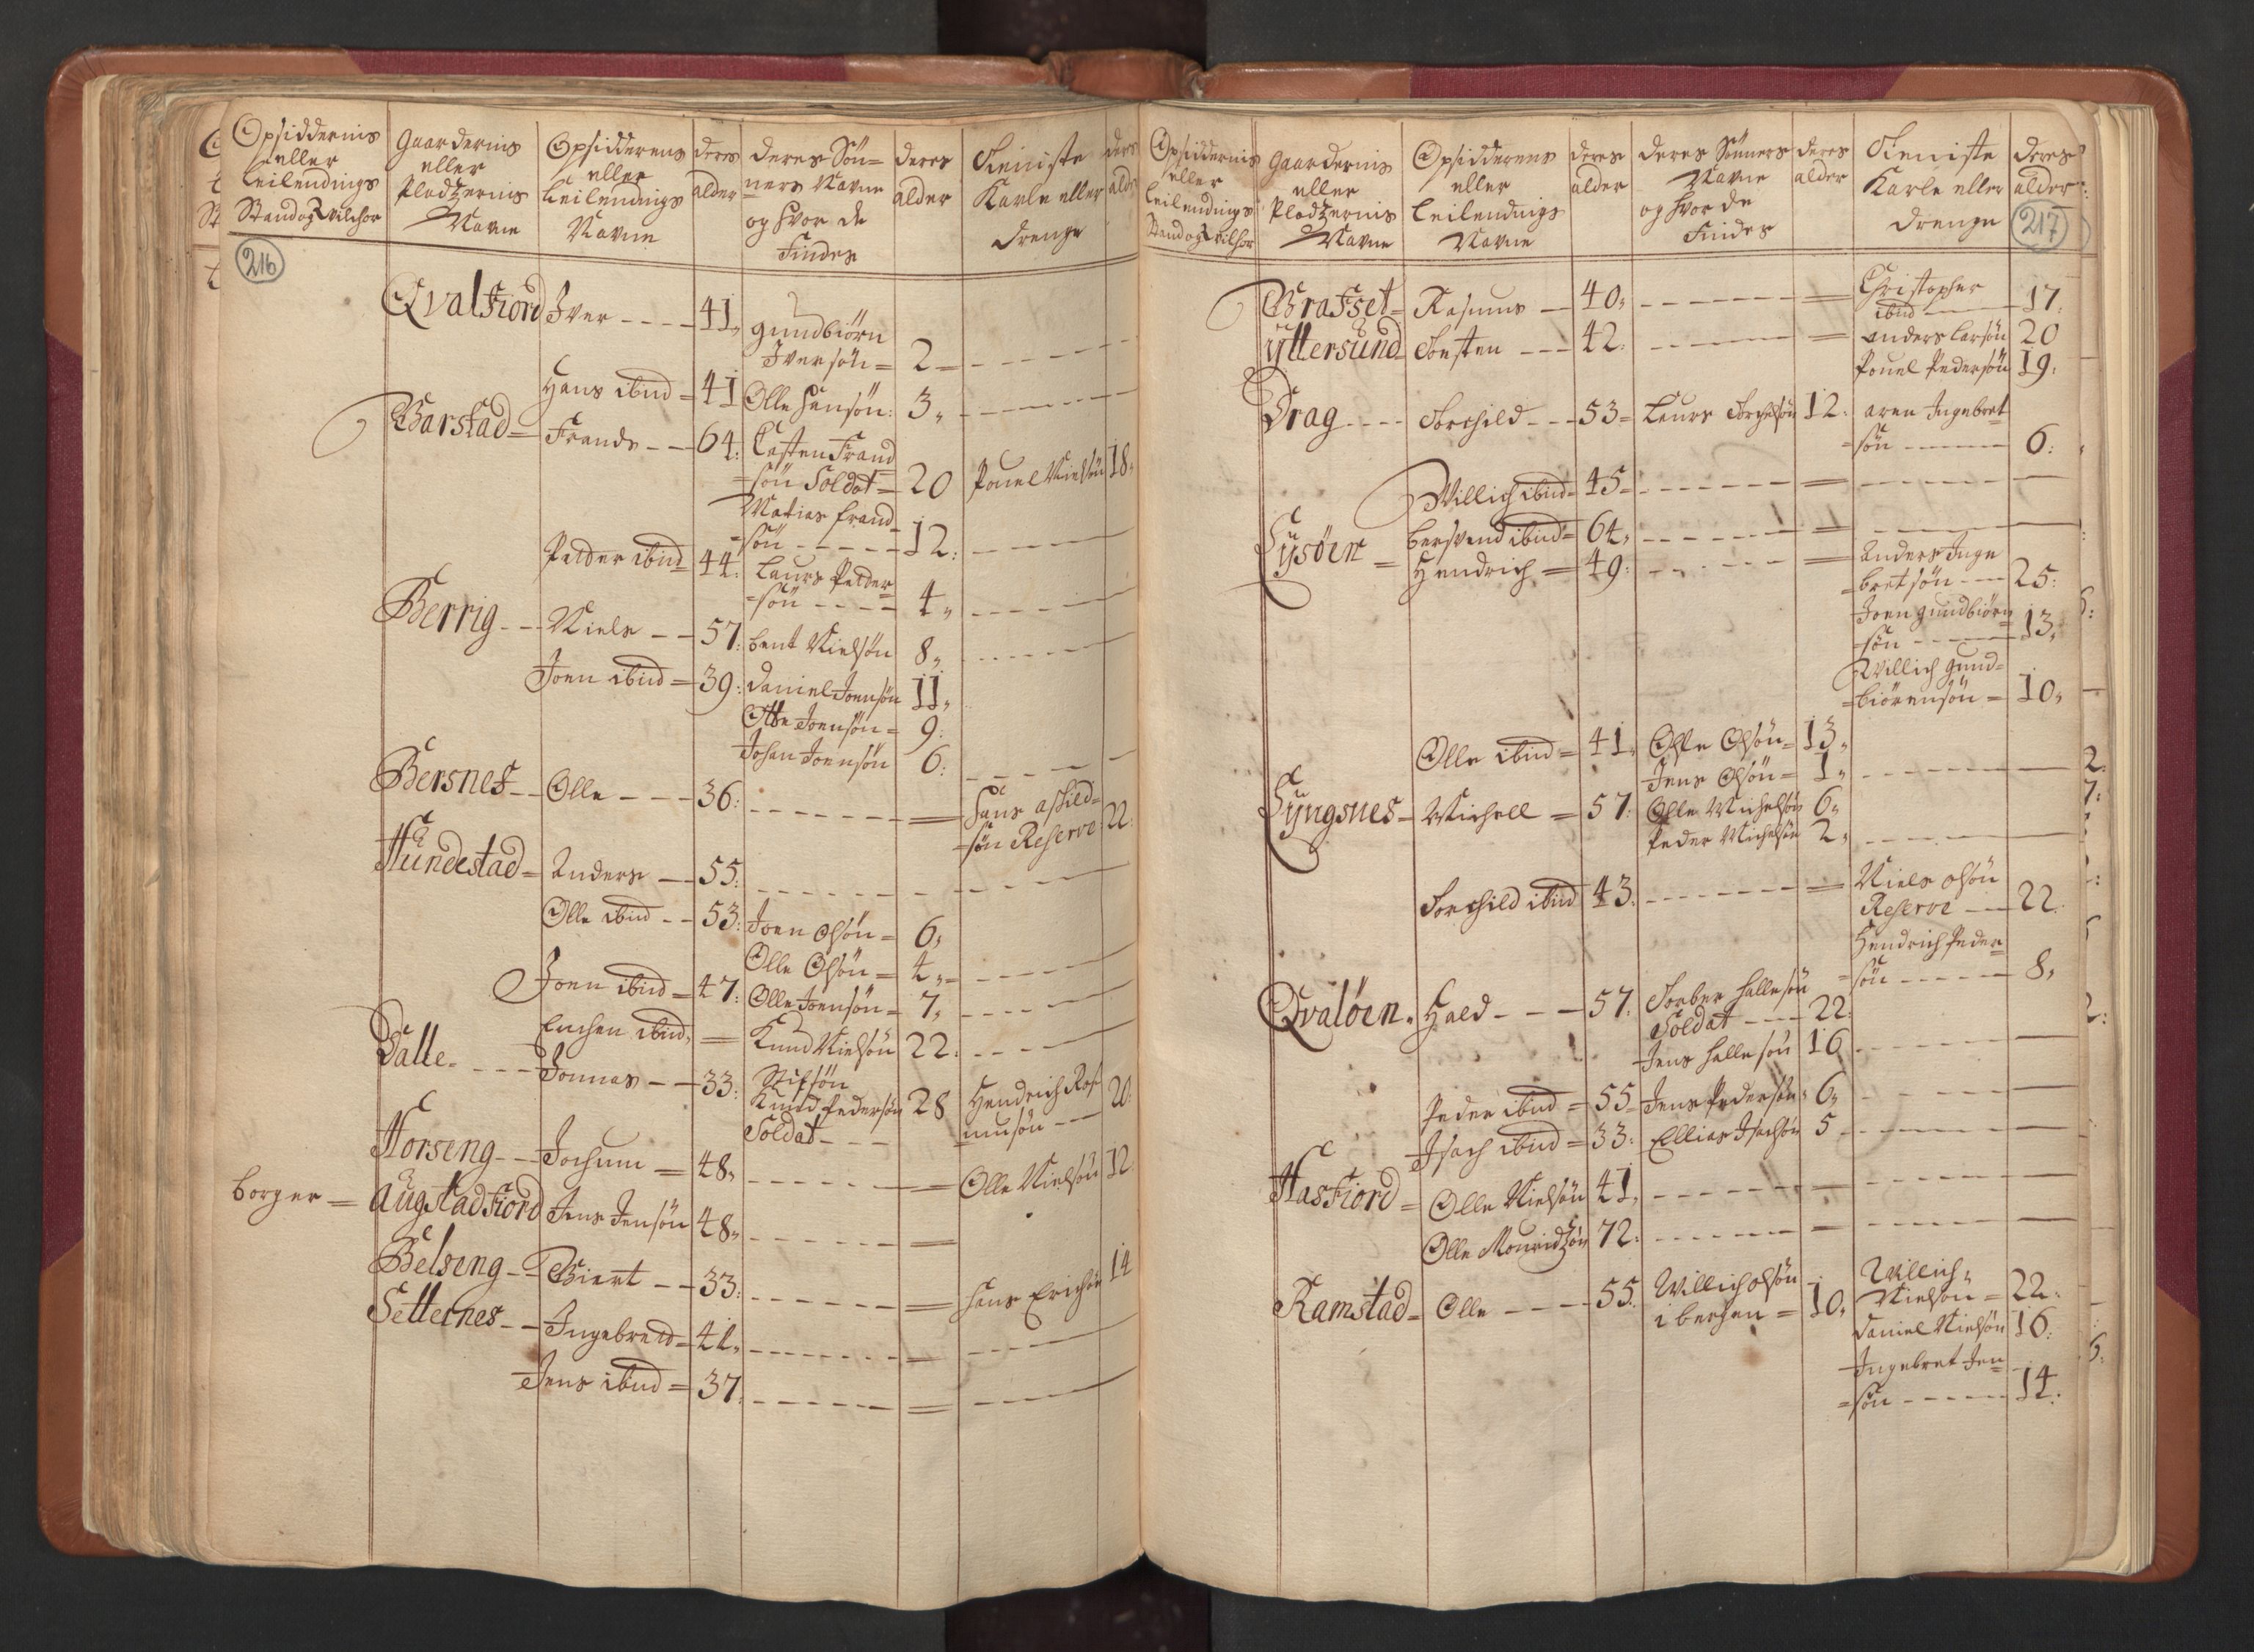 Opsiddernis eller Leilendings Stand og Vilchor
Gaardernis eller Pladzernis Navne
Opsidderens eller Leilendings Navne
deres alder
deres Sönners Navne og hvor de Findes
deres alder
Tieniste Karle eller drenge
deres alder
216
QvalFiord Iver - - - - 41, gundbiörn
Iversön = 2 = - - - -
Hans ibid = 41 Olle Hansön: 3, - - - -
Barstad = Frands - - 64: Casten Frand
=sön Soldat = 20 Pouel Nielsön 18,
Matias Frand
=sön - - - - - 12: - - - -
Petder ibid = 44: Laurs Petder
=sön - - - - 4, - - - -
Berrig - - Niels - - 57: bent Nielsön 8, - - - -
Joen ibid = 39: daniel Joensön 11,
Otte Joensön = 9:
Johan Joensön 6: - - - -
Bersnes - - Olle - - - 36: - - - - = Hans aschild=
=sön Reserve 22:
Hundestad = Anders - - 55: - - - -
Olle ibid - - 53: Joen Olsön = 6,
Olle Olsön = 4, = - - - -
Joen ibid = 47: Olle Joensön = 7, - - - -
Enchen ibid, = Knud Nielsön 22: - - - -
Dalle - - - - Tommas - - 33: Stifsön
Knud Pedersön 28 Hendrich Ras=
Soldat - - - musön - - 20:
Horseng - - Jochum = 48, - - - - = Olle Nielsön 12
borger = AugstadFiord Jens Jensön 48, - - - - =
Belseng - - Biert - - 33: - - - - = Hans Erichsön 14
Setternes - - Ingebrect = 42, - - - - = - - - -
Jens ibid = 37 - - - - = - - - -
Opsiddernis eller Leilendings Stand og Vilchor
Gaardernis eller Pladzernis Navne
Opsidderens eller Leilendings Navne
deres alder
deres Sönners Navne og hvor de Findes
deres alder
Tieniste Karle eller drenge
deres alder
217
Brafset = Rasmus - 40, - - - - = Christopher
ibid - - 17:
Yttersund Torsten - - 42: - - - - = anders Larsön 20
Pouel Pedersön 19:
Drag - - - - Torchild - - 53 = Laurs Torchelsön 12: aren Ingebret
=sön - - - 6:
Willich ibid = 45 = - - - - = - - - -
bersvend ibid = 64, - - - - = - - - -
Lysöen = Hendrich = 49: - - - - = Anders Inge
=bretsön - - 25:
Joen gundbiörn
=sön - - - 13,
Willich gund=
=biörensön = 10,
Olle ibid = 41, Olle Olsön = 13,
Jens Olsön = 1, - - - -
Lyngsnes = Michell = 57: Olle Michelsön 6,
Peder Michelsön 2, - - - -
Torchild ibid 43: - - - - = Niels Olsön
Reserve - - 22:
Hendrich Peder
=sön - - - - 8,
Qvalöen = Hald - - - 57: Torber Hallesön
Soldat - - - 22:
Jens Hallesön 16 - - - -
Peder ibid = 55 = Jens Pedersön = 6, - - - -
Isach ibid = 33: Ellias Isachsön 5 - - - -
HasFiord = Olle Nielsön 41, - - - - = - - - -
Olle Mouridzön 72: - - - - = - - - -
Ramstad = Olle - - - - 55: Willich Olsön
i berhen = 10, Willich
Nielsön = 22:
daniel Nielsön 16:
Ingebret Jen=
=sön - - - - - 14: